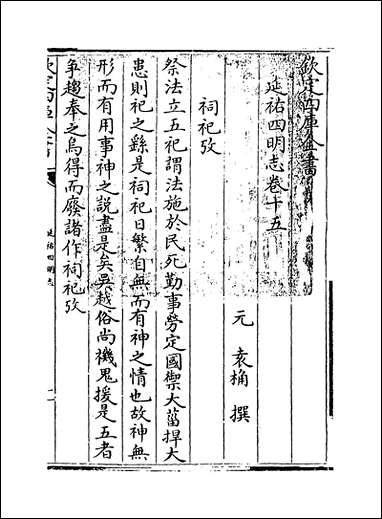 欽定四庫全書
延祐四明志卷十五
元 袁桷 撰
祠祀攷
祭法立五祀謂法施於民死勤事勞定國禦大菑捍大
患則祀之繇是祠祀日繁自無而有神之情也故神無
形而有用事神之說盡是矣吳越俗尚禨鬼援是五者
爭趨奉之烏得而廢諸作祠祀攷
欽定四庫全書
延祐四明志